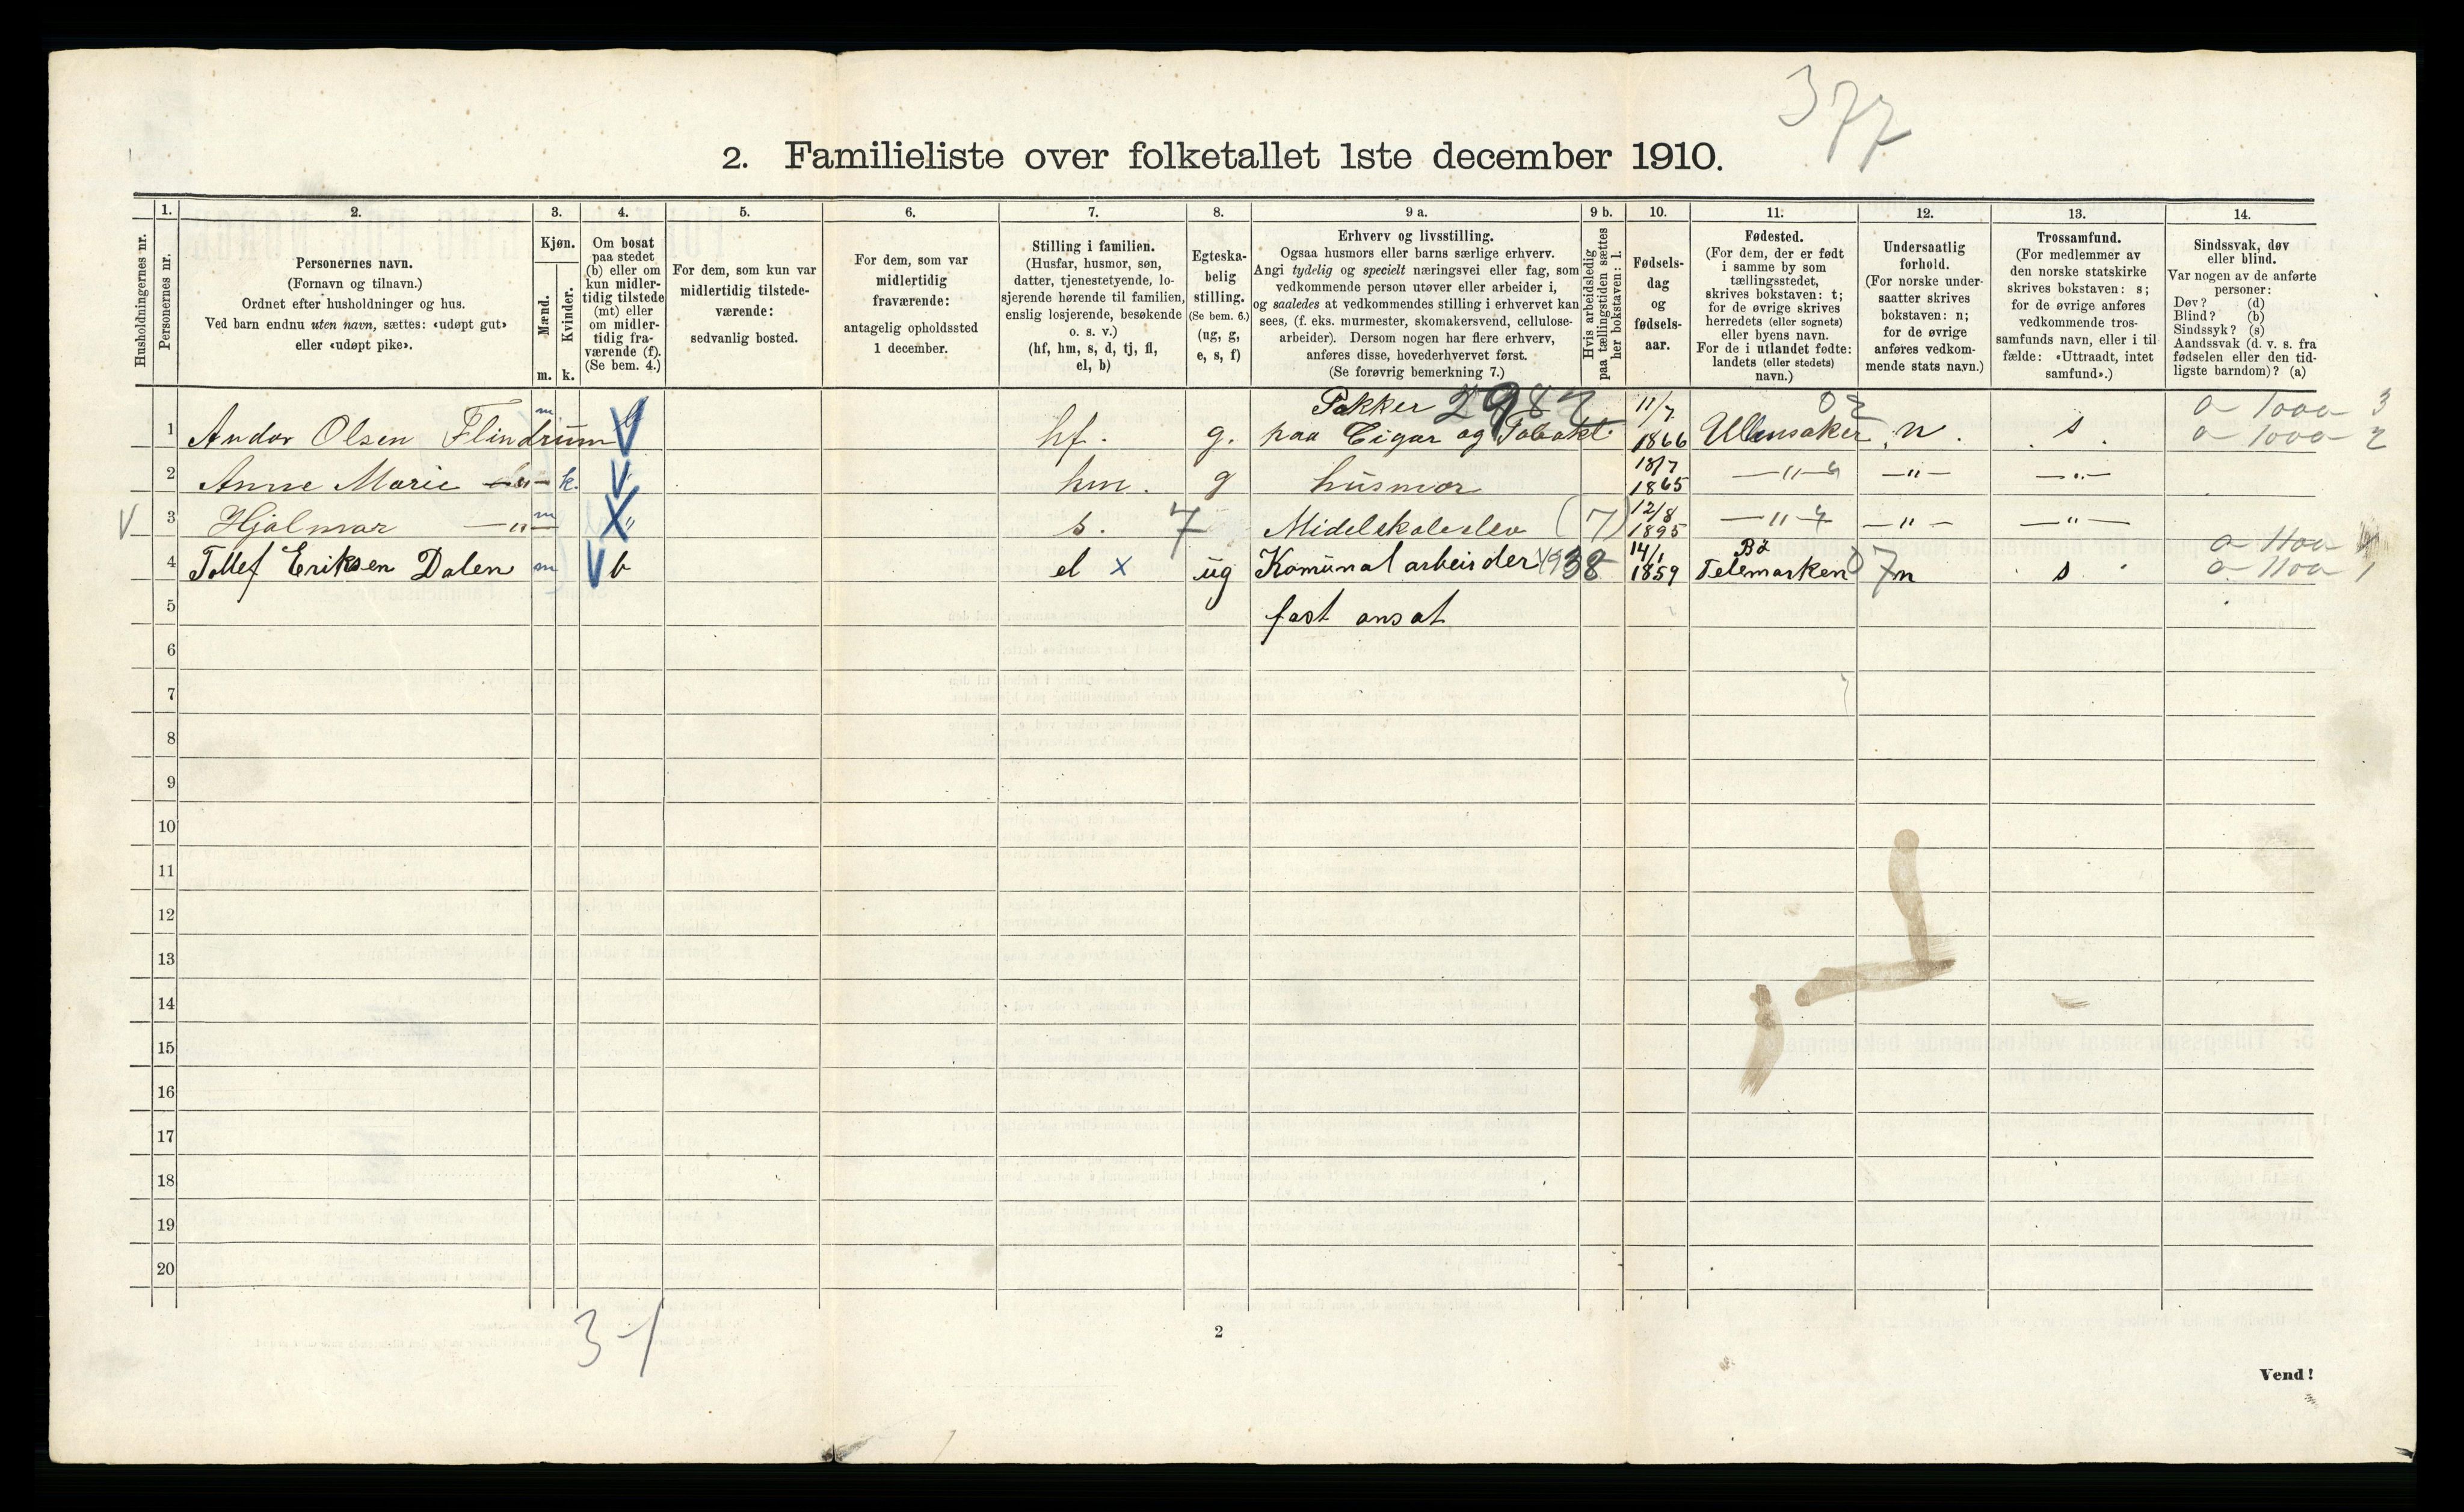 377
2. Familieliste over folketallet 1ste december 1910.
Husholdningernes nr.
1.
Personernes nr.
2.
Personernes navn.
(Fornavn og tilnavn.)
Ordnet efter husholdninger og hus.
Ved barn endnu uten navn, sættes: «udøpt gut»
eller «udøpt pike».
3.
Kjøn.
Mænd.
Kvinder.
m. k.
4.
Om bosat
paa stedet
(b) eller om
kun midler-
tidig tilstede
(mt) eller
om midler-
tidig fra-
værende (f).
(Se bem. 4.)
5.
For dem, som kun var
midlertidig tilstede-
værende:
sedvanlig bosted.
6.
For dem, som var
midlertidig
fraværende:
antagelig opholdssted
1 december.
7.
Stilling i familien.
(Husfar, husmor, søn,
datter, tjenestetyende, lo-
sjerende hørende til familien,
enslig losjerende, besøkende
o. s. v.)
(hf, hm, s, d, tj, fl,
el, b)
8.
Egteska-
belig
stilling.
(Se bem. 6.)
(ug, g,
e, s, f)
9 a.
Erhverv og livsstilling.
Ogsaa husmors eller barns særlige erhverv.
Angi tydelig og specielt næringsvei eller fag, som
vedkommende person utøver eller arbeider i,
og saaledes at vedkommendes stilling i erhvervet kan
sees, (f. eks. murmester, skomakersvend, cellulose-
arbeider). Dersom nogen har flere erhverv,
anføres disse, hovederhvervet først.
(Se forøvrig bemerkning 7.)
9 b.
Hvis arbeidsledig
paa tællingstiden sættes
her bokstaven: l.
10.
Fødsels-
dag
og
fødsels-
aar.
11.
Fødested.
(For dem, der er født
i samme by som
tællingsstedet,
skrives bokstaven: t;
for de øvrige skrives
herredets (eller sognets)
eller byens navn.
For de i utlandet fødte:
landets (eller stedets)
navn.)
12.
Undersaatlig
forhold.
(For norske under-
saatter skrives
bokstaven: n;
for de øvrige
anføres vedkom-
mende stats navn.)
13.
Trossamfund.
(For medlemmer av
den norske statskirke
skrives bokstaven: s;
for de øvrige anføres
vedkommende tros-
samfunds navn, eller i til-
fælde: «Uttraadt, intet
samfund».)
14.
Sindssvak, døv
eller blind.
Var nogen av de anførte
personer:
Døv? (d)
Blind? (b)
Sindssyk? (s)
Aandssvak (d. v. s. fra
fødselen eller den tid-
ligste barndom)? (a)
Pakker 2982 11/7 02 a 1000 3
1 Andor Olsen Flindrum m hf. g. paa Cigar og 1866 Ullensaker n. s. a 1000 2
2 Anne Marie —"— k. " hm. g husmor 18/7 1865 —"— —"— —"—
V 3 Hjalmar —"— m X " s. 7 Midelskoleelev (7) 12/8 1895 —"— —"— —"—
4 Tollef Eriksen Dalen m V b el x ug Komunal arbeider 38 14/1 1859 Bø Telemarken 07 n s a 1100 1
5 fast ansat
6
7
8
9
10
11
12
13
14
15
16
17
18
19
20
3-1
2
Vend!